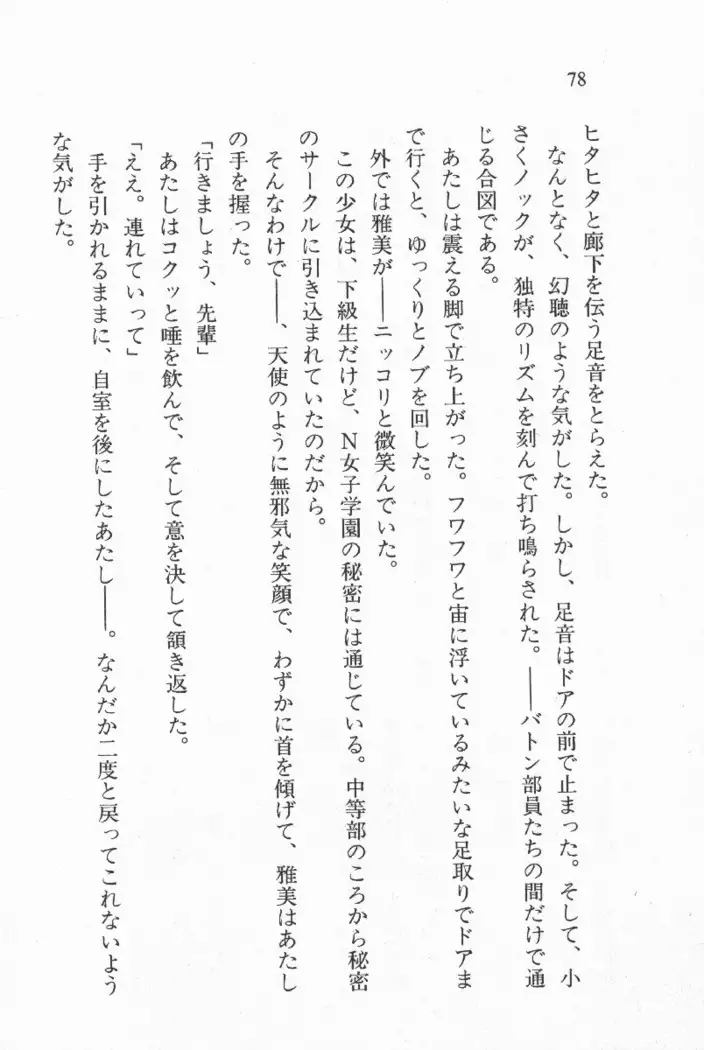 78
ヒタヒタと廊下を伝う足音をとらえた。
なんとなく、幻聴のような気がした。しかし、足音はドアの前で止まった。そして、小
さくノックが、独特のリズムを刻んで打ち鳴らされた。――バトン部員たちの間だけで通
じる合図である。
あたしは震える脚で立ち上がった。フワフワと宙に浮いているみたいな足取りでドアま
で行くと、ゆっくりとノブを回した。
外では雅美が――ニッコリと微笑んでいた。
この少女は、下級生だけど、Ｎ女子学園の秘密には通じている。中等部のころから秘密
のサークルに引き込まれていたのだから。
そんなわけで――、天使のように無邪気な笑顔で、わずかに首を傾げて、雅美はあたし
の手を握った。
「行きましょう、先輩」
あたしはコクッと唾を飲んで、そして意を決して頷き返した。
「ええ。連れていって」
手を引かれるままに、自室を後にしたあたし――。なんだか二度と戻ってこれないよう
な気がした。